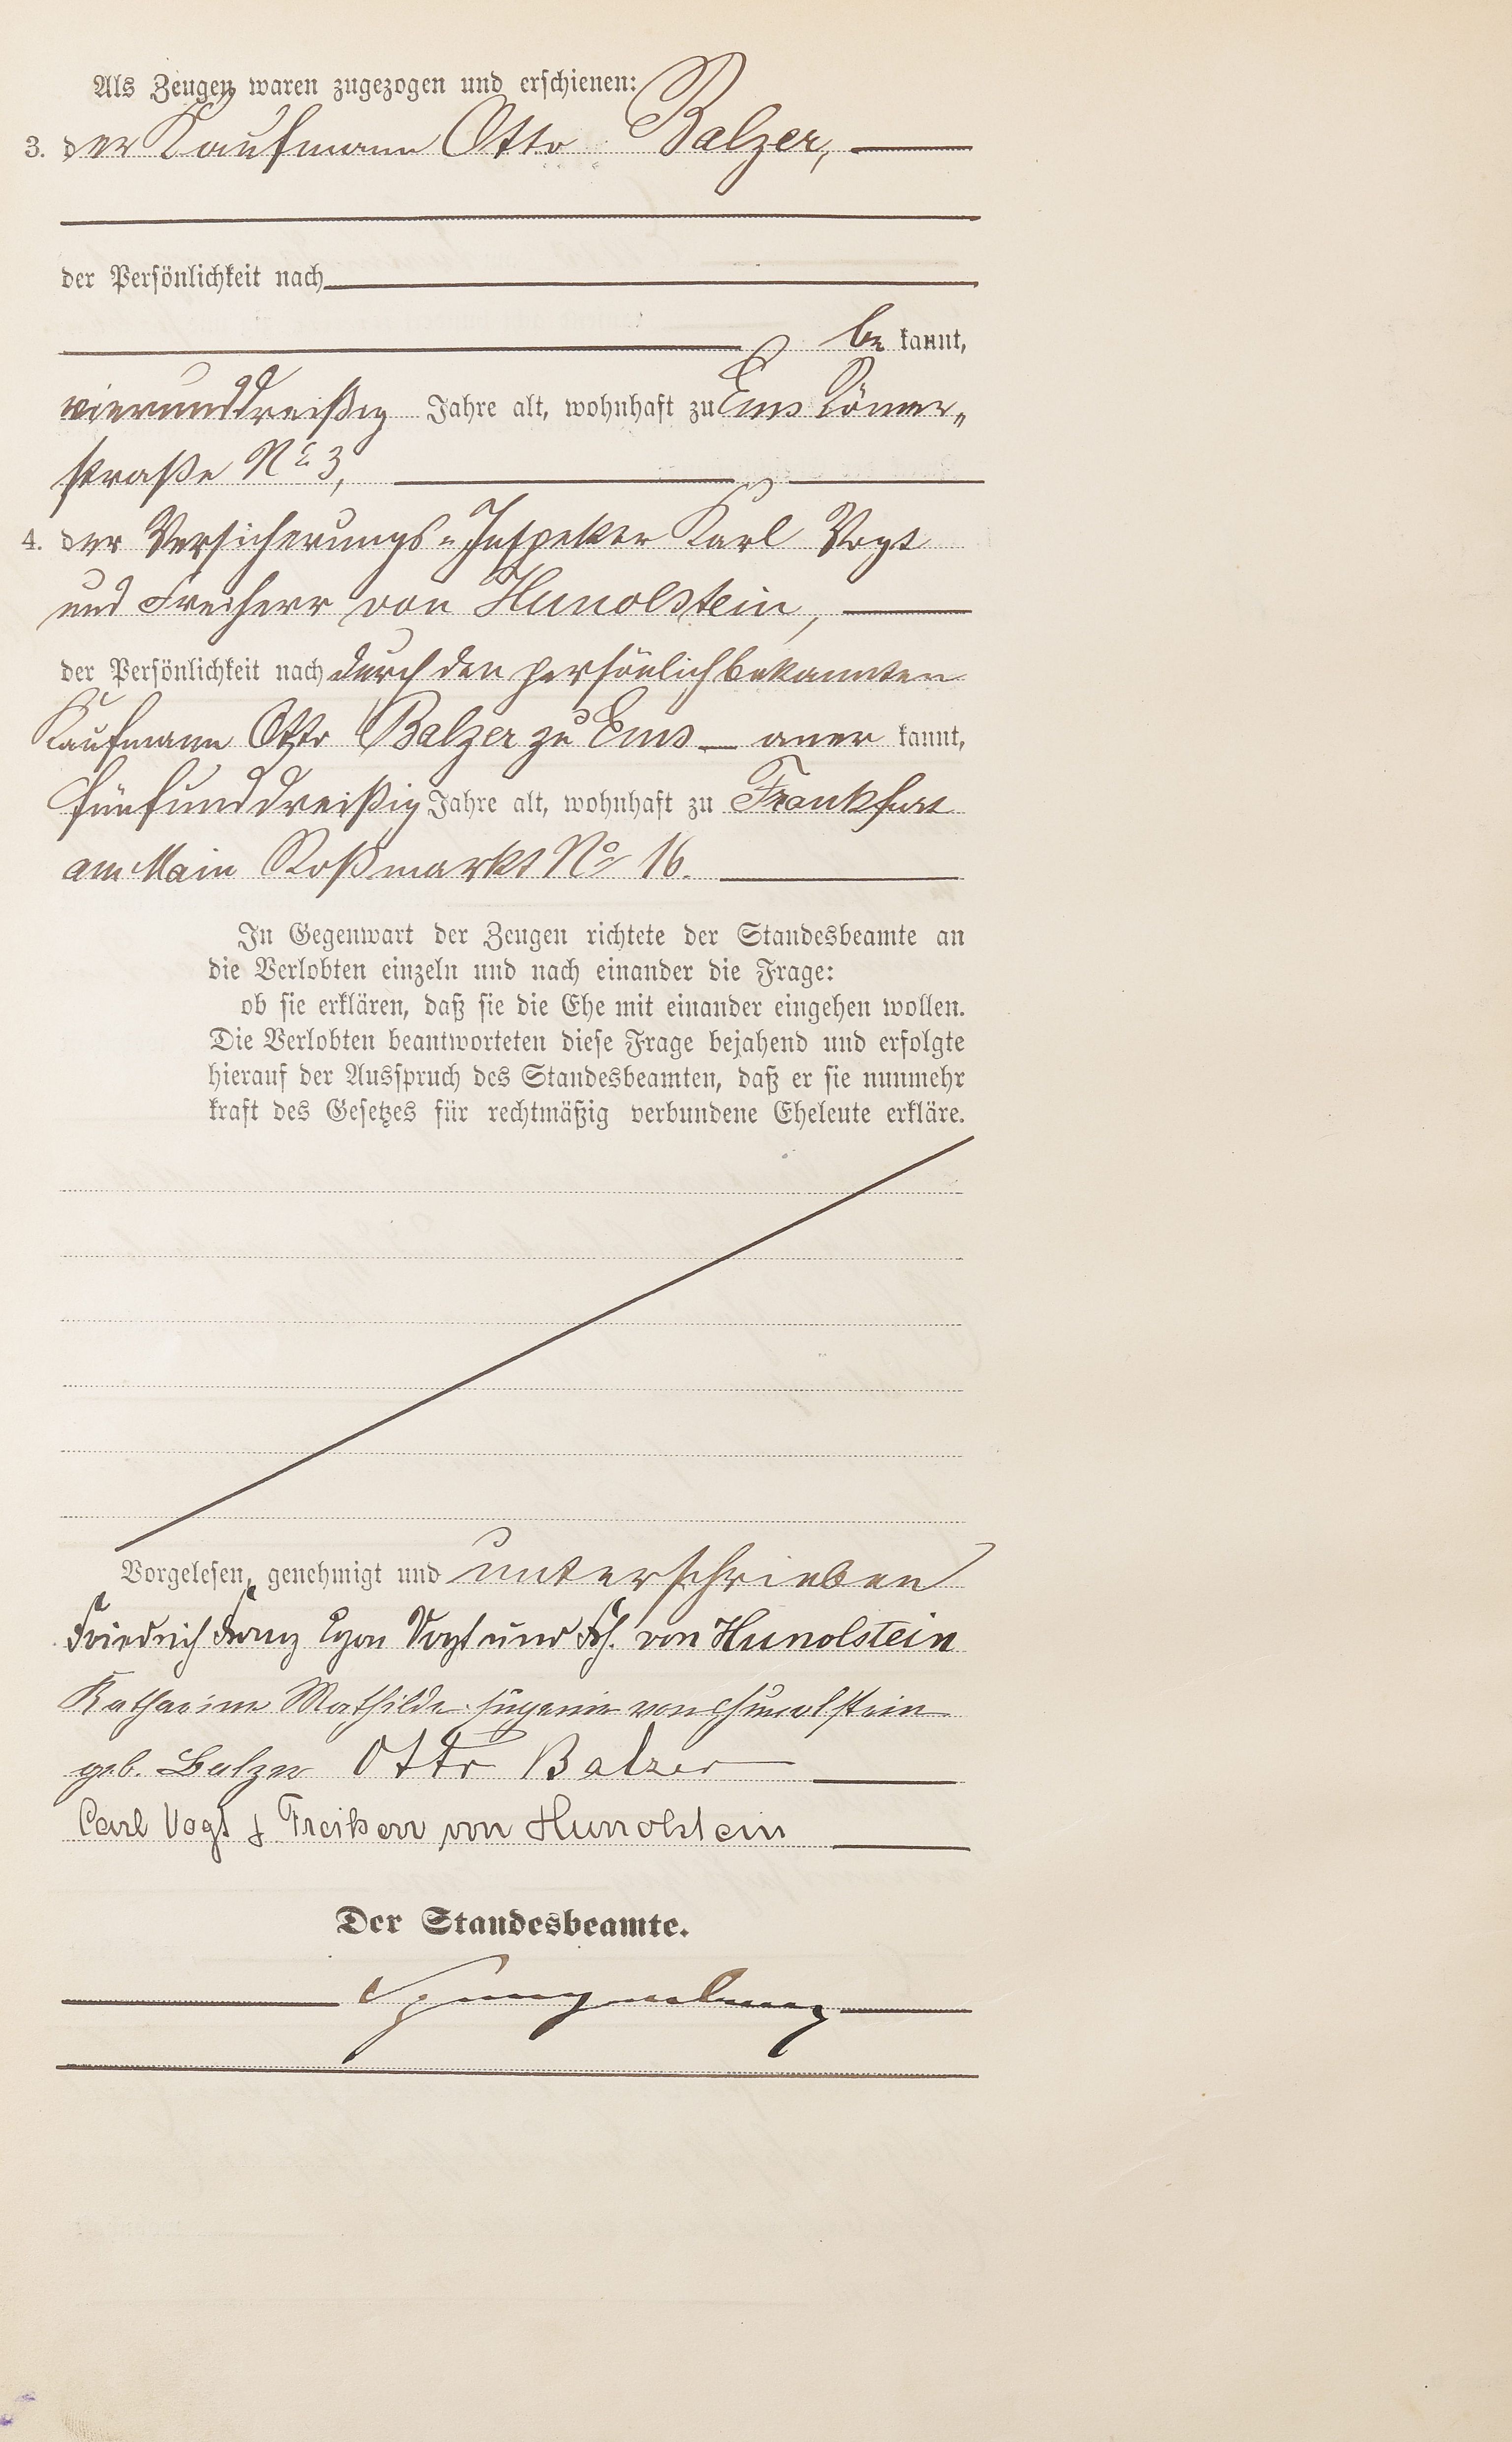 Als Zeugen waren zugezogen und erschienen:
3. der Kaufmann Otto Balzer,
der Persönlichkeit nach
be kannt,
vierunddreißig Jahre alt, wohnhaft zu Ems Römer-
straße No 3,
4. der Versicherungs-Inspektor Karl Vogt
und Freiherr von Hunolstein,
der Persönlichkeit nach durch den persönlich bekannten
Kaufmann Otto Balzer zu Ems aner kannt,
fünfunddreißig Jahre alt, wohnhaft zu Frankfurt
am Main Roßmarkt No 16.
In Gegenwart der Zeugen richtete der Standesbeamte an
die Verlobten einzeln und nach einander die Frage:
ob sie erklären, daß sie die Ehe mit einander eingehen wollen.
Die Verlobten beantworteten diese Frage bejahend und erfolgte
hierauf der Ausspruch des Standesbeamten, daß er sie nunmehr
kraft des Gesetzes für rechtmäßig verbundene Eheleute erkläre.
Vorgelesen, genehmigt und unterschrieben
Friedrich Franz Egon Vogt und Frh. von Hunolstein
Katharine Mathilde Eugenie von Hunolstein
geb. Balzer Otto Balzer
Carl Vogt & Freiherr von Hunolstein
Der Standesbeamte.